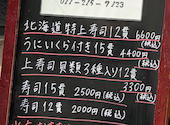 北海道特上寿司12貫 6600円
(税込)
うにいくら付き15貫 4400円
(税込)
上寿司貝類3種入り12貫
3300円
(税込)
寿司15貫 2500円(税込)
寿司12貫 2000円(税込)